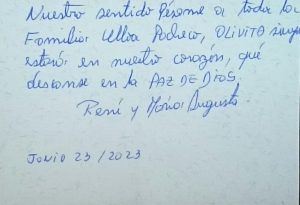 Nuestro sentido Pésame a toda la
Familia Ulloa Pacheco, OLIVITO siempre
estará en nuestro corazón, qué
descanse en la PAZ DE DIOS.
René y María Augusta.
Junio 23 / 2023